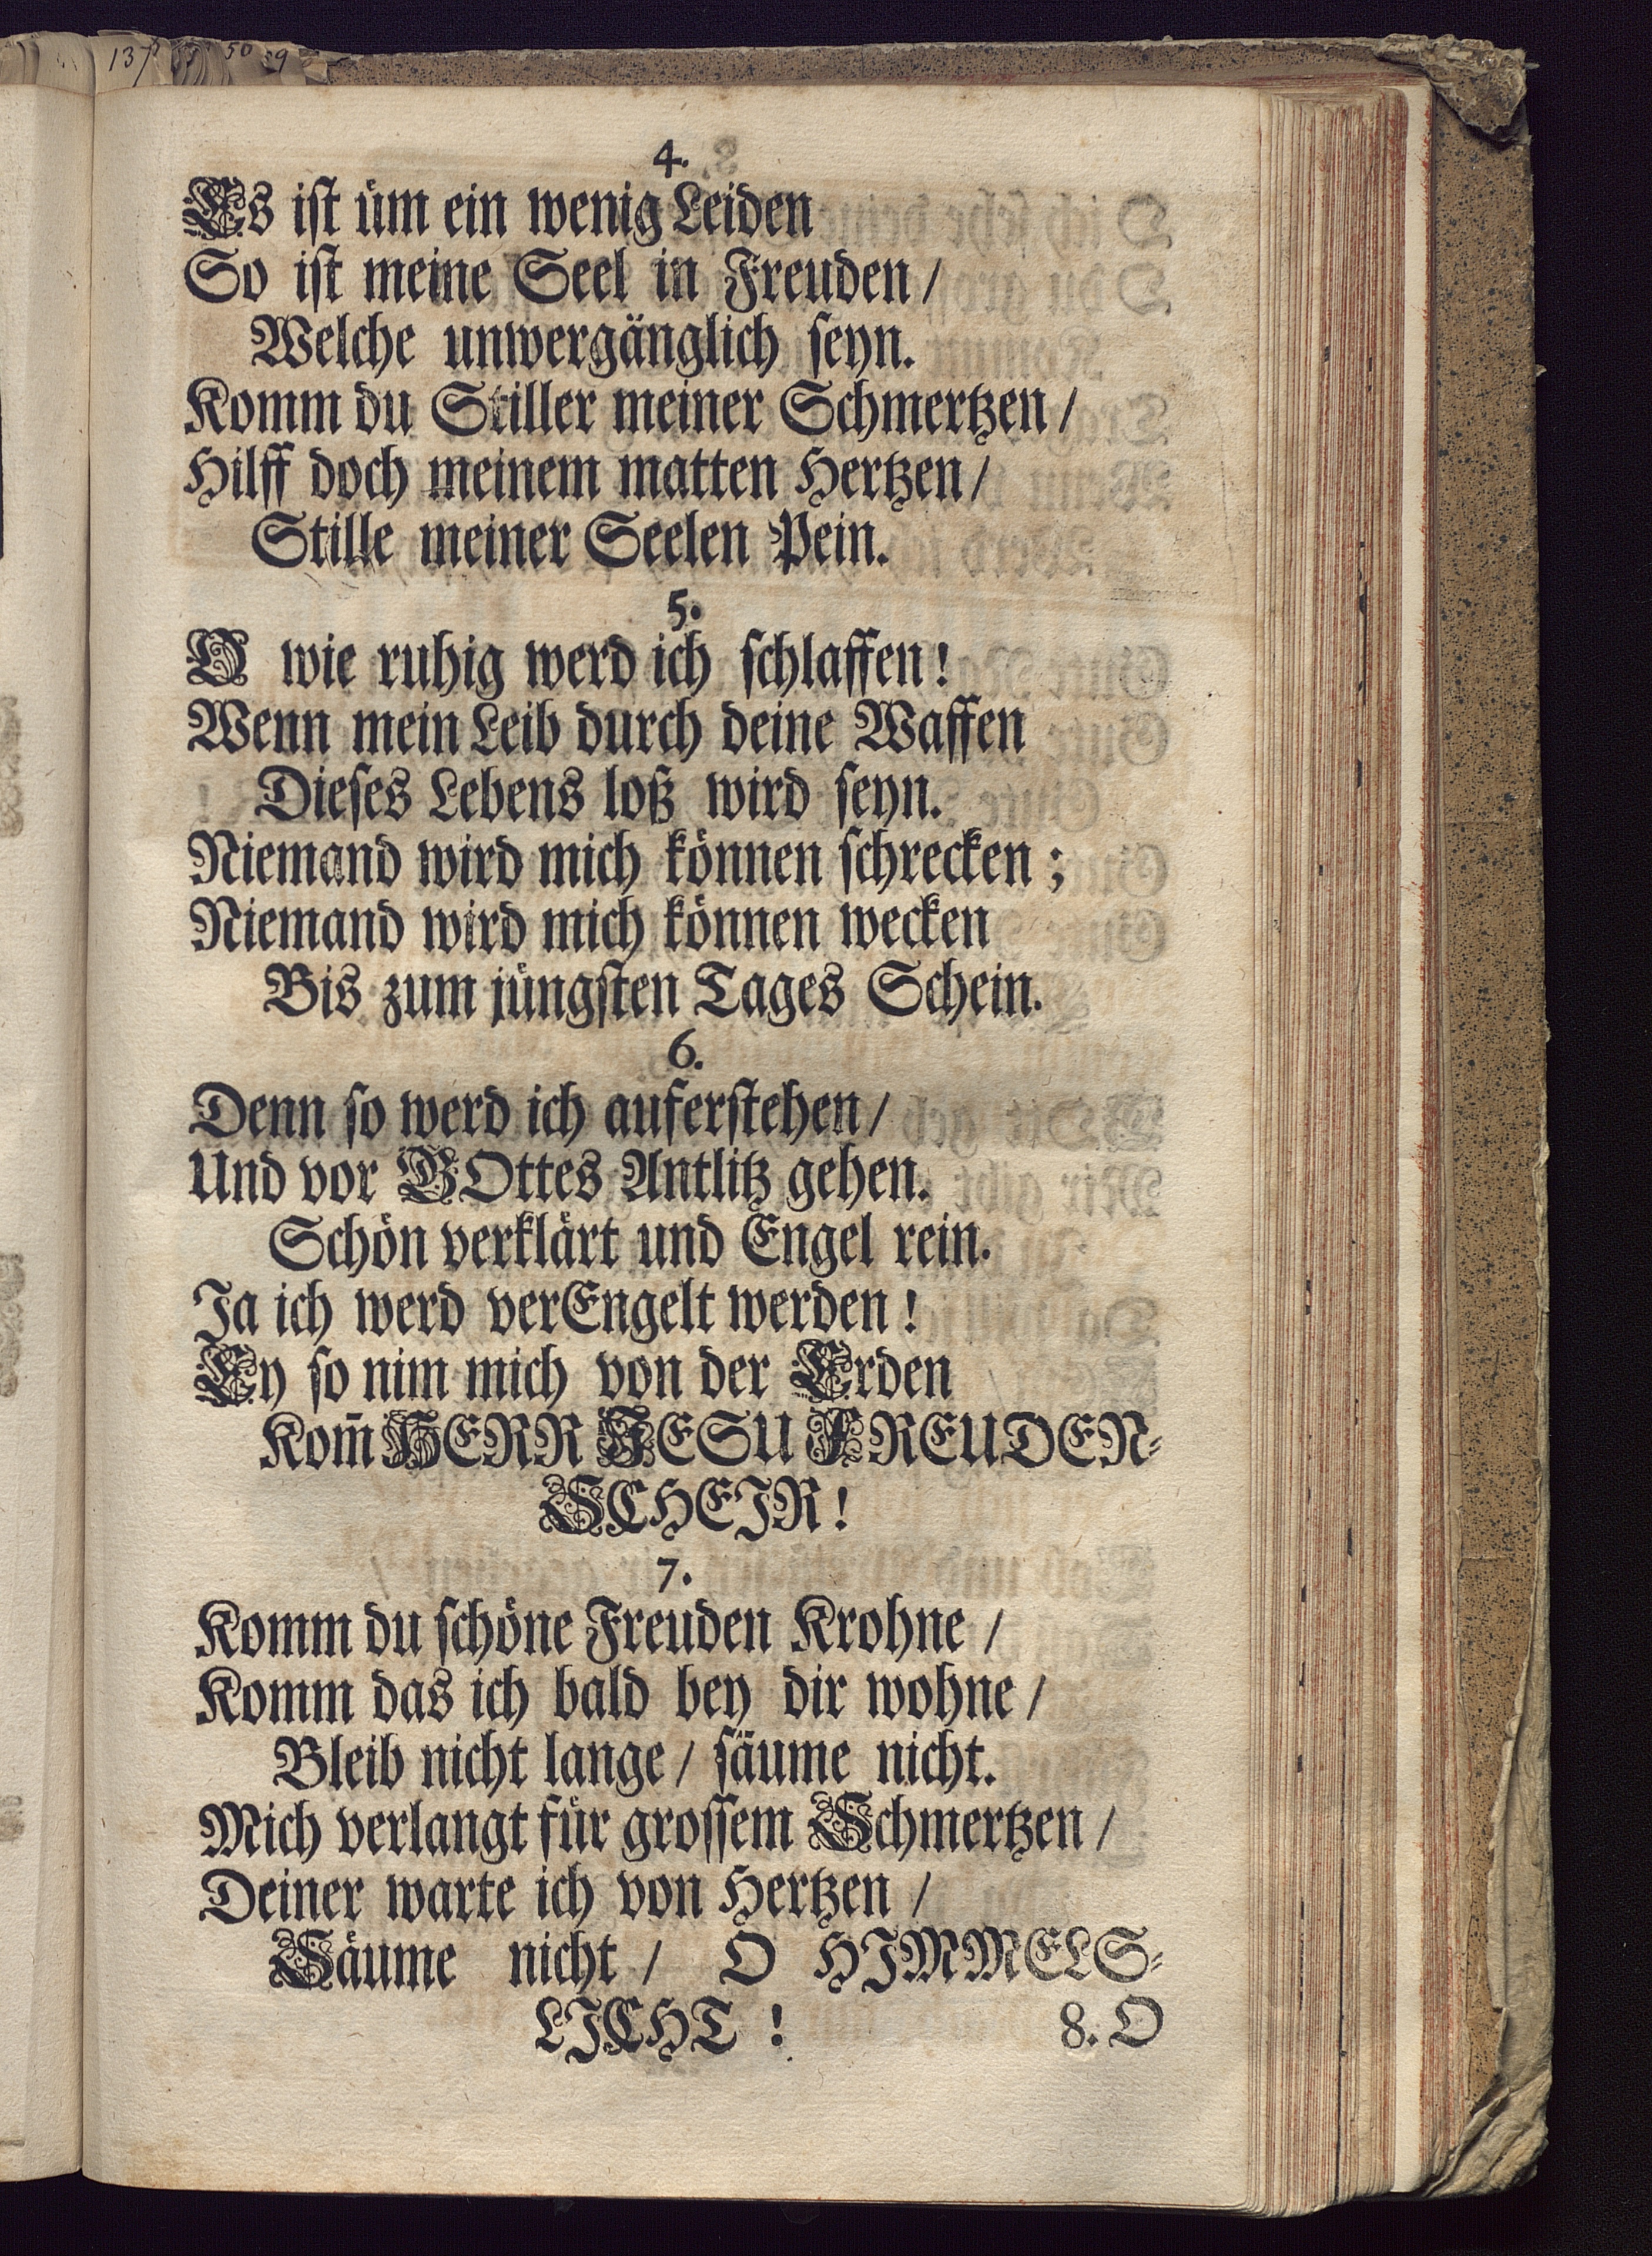 137 55 50 59
4.
Es ist üm ein wenig Leiden
So ist meine Seel in Freuden /
Welche unwergänglich seyn.
Komm du Stiller meiner Schmertzen /
Hilff doch meinem matten Hertzen /
Stille meiner Seelen Pein.
5.
O wie ruhig werd ich schlaffen!
Wenn mein Leib durch deine Waffen
Dieses Lebens loß wird seyn.
Niemand wird mich können schrecken;
Niemand wird mich können wecken
Bis zum jüngsten Tages Schein.
6.
Denn so werd ich auferstehen /
Und vor GOttes Antlitz gehen.
Schön verklärt und Engel rein.
Ja ich werd verEngelt werden!
Ey so nim mich von der Erden
Kom̃ HERR JESU FREUDEN-
SCHEIR!
7.
Komm du schöne Freuden Krohne /
Komm das ich bald bey dir wohne /
Bleib nicht lange / säume nicht.
Mich verlangt für grossem Schmertzen /
Deiner warte ich von Hertzen /
Säume nicht / O HIMMELS-
LICHT!
8. O